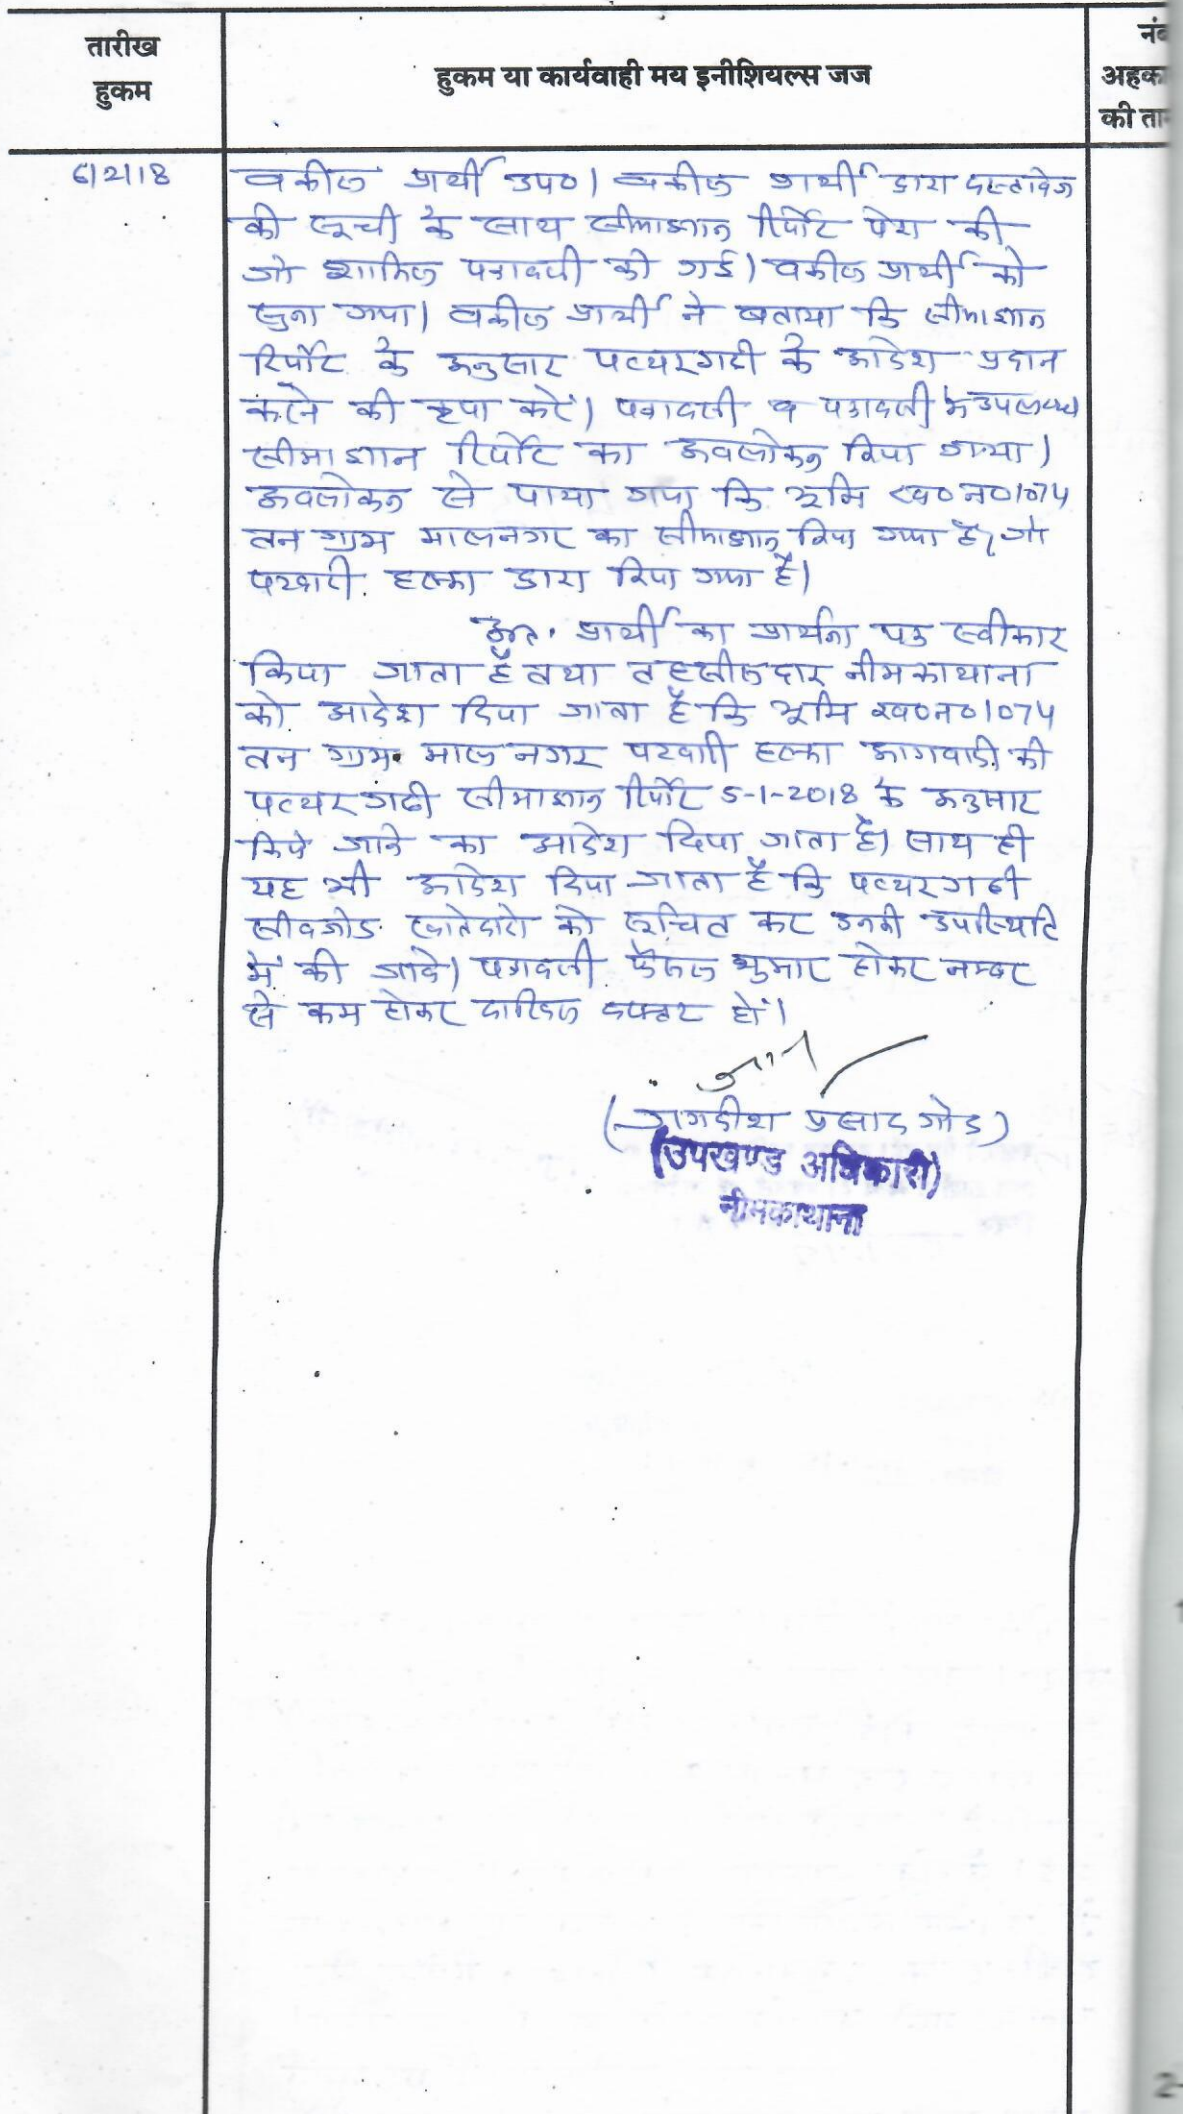 तारीख
हुकम
हुकम या कार्यवाही मय इनीशियल्स जज
नं
अहका
की ता
6/2/18
वकील प्रार्थी उप०। वकील प्रार्थी द्वारा दस्तावेज
की सूची के साथ सीमाज्ञान रिर्पोट पेश की
जो शामिल पत्रावली की गई। वकील प्रार्थी को
सुना गया। वकील प्रार्थी ने बताया कि सीमाज्ञान
रिर्पोट के अनुसार पत्थरगढी के आदेश प्रदान
करने की कृपा करें। पत्रावली व पत्रावली मे उपलब्ध
सीमाज्ञान रिर्पोट का अवलोकन किया गया।
अवलोकन से पाया गया कि भूमि ख०न०1074
तन ग्राम मालनगर का सीमाज्ञान किया गया है, जो
पटवारी हल्का द्वारा किया गया है।
अत. प्रार्थी का प्रार्थना पत्र स्वीकार
किया जाता है तथा तहसीलदार नीमकाथाना
को आदेश दिया जाता है कि भूमि ख०न०1074
तन ग्राम मालनगर पटवारी हल्का आगवाडी की
पत्थरगढी सीमाज्ञान रिर्पोट 5-1-2018 के अनुसार
किये जाने का आदेश दिया जाता है। साथ ही
यह भी आदेश दिया जाता है कि पत्थरगढी
सीवजोड खातेदारो को सूचित कर उनकी उपस्थिति
में की जावे। पत्रावली फैसल शुमार होकर नम्बर
से कम होकर दाखिल दफ्तर हों।
(जगदीश प्रसाद गोड)
(उपखण्ड अधिकारी)
नीमकाथाना